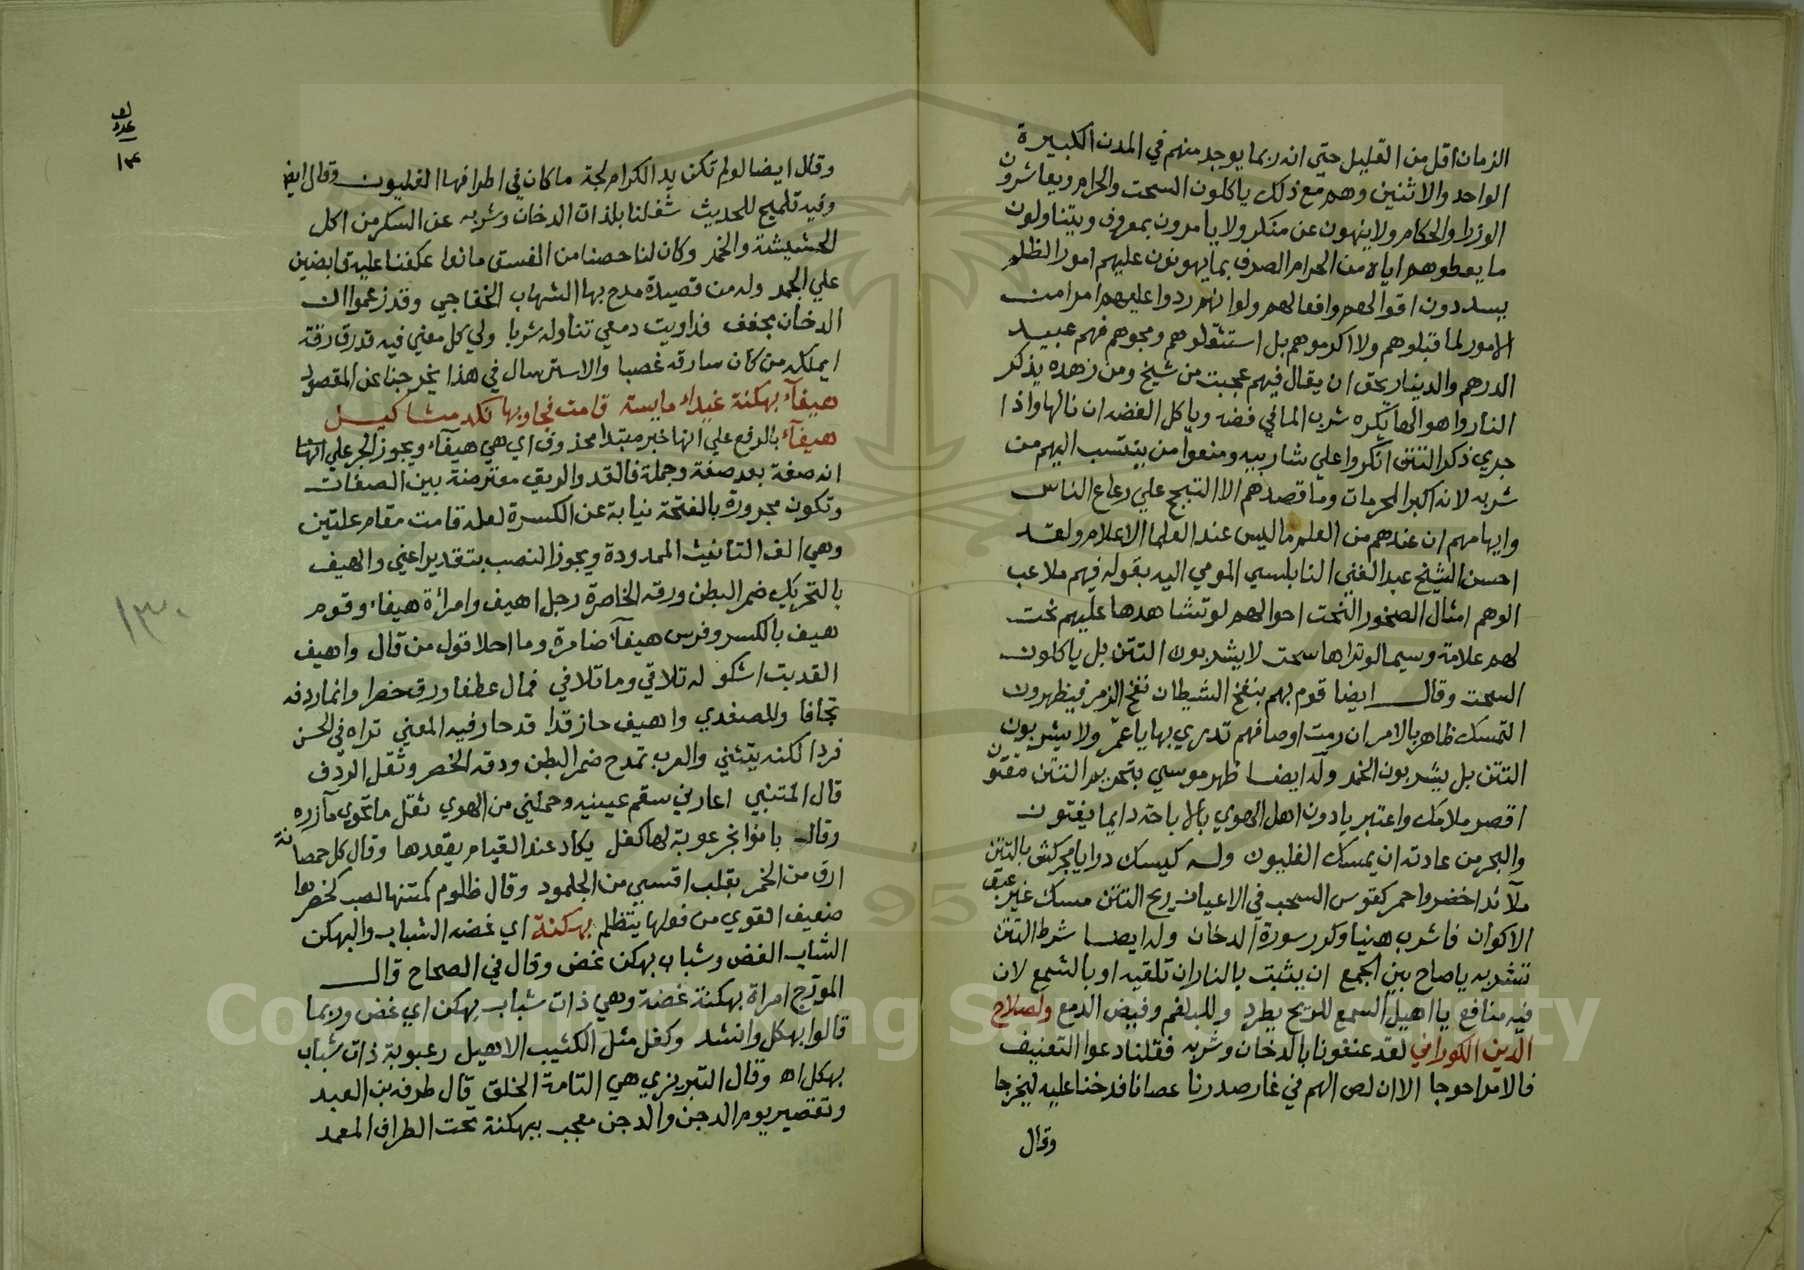 الزمان اقل من القليل حتي انه ربما يوجد منهم في المدن الكبيرة
الواحد والاثنين وهم مع ذلك ياكلون السحت والحرام ويعاشرون
الوزرا والحكام ولا ينهون عن منكر ولا يامرون بمعروف ويتناولون
ما يعطوهم اياه من الحرام الصرف بما يهونون عليهم امور الظلم
يسددون اقوالهم وافعالهم ولو انهم ردوا عليهم امرا من
الامور لما قبلوهم ولا اكرموهم بل استثقلوهم ومجوهم فهم عبيد
الدرهم والدينار بحق ان يقال فيهم عجبت من شيخ ومن زهده يذكر
النار واهوالها يكره شرب الما في فضة وياكل الفضه ان نالها واذا
جري ذكر التتن انكروا علي شاربيه ومنعوا من ينتسب اليهم من
شربه لانه اكبر المحرمات وما قصدهم الا التبجح علي رعاع الناس
وايهامهم ان عندهم من العلم ما ليس عند العلما الاعلام ولقد
احسن الشيخ عبد الغني النابلسي المومي اليه بقوله فيهم ملاعب
الوهم امثال الصخور النحت احوالهم لو تشاهدها عليهم نحت
لهم علامة وسيما لو تراها سحت لا يشربون التتن بل ياكلون
السحت وقال ايضا قوم بهم ينفخ الشيطان نفخ الزمر فيظهرون
التمسك ظاهر بالامر ان رمت اوصافهم تدري بها يا عمر ولا يشربون
التتن بل يشربون الخمر وله ايضا ظهر موسي بتحريم التتن مفتون
اقصر ملامك واعتبر يا دون اهل الهوي بالاباحة دايما يفتون
والبحر من عادته ان يمسك الغليون وله كيسك درايا مجركش بالتتن
ملآئد اخضر واحمر كقوس السحب في الاعيان ريح التتن مسك غير عبق
الاكوان فاشرب هنيا وكرر سورة الدخان وله ايضا شرط التتن
تشربه يا صاح بين الجمع ان يثبت بالنار ان تلقيه او بالشمع لان
فيه منافع يا اهيل السمع للريح يطرد وللبلغم وفيض الدمع ولصلاح
الدين الكوراني لقد عنفونا بالدخان وشربه فقلنا دعوا التعنيف
فالامر احوجا الا ان لص الهم في غار صدرنا عصانا فدخنا عليه ليخرجا
وقال
لف
عدد
١٣
وقال ايضا لو لم تكن يد الكرام لجة ما كان في اطرافها الغليون وقال ايضا
وفيه تلميح للحديث شغلنا بلذات الدخان وشربه عن السكر من اكل
الحشيشة والخمر وكان لنا حصنا من الفسق مانعا عكفنا عليه قابضين
علي الجمر وله من قصيدة مدح بها الشهاب الخفاجي وقد زعموا ان
الدخان يجفف فداويت دمعي تناوله شربا ولي كل معني فيه قد رق رقة
ايملكه من كان سارقه غصبا والاسترسال في هذا يخرجنا عن المقصود
هيفآء بهكنة غيداء مايسة قامت فجاوبها نكد مثاكيل
هيفآء بالرفع علي انها خبر مبتدا محذوف اي هي هيفآء ويجوز الجر علي انها
انه صفة بعد صفة وجملة فالقد والريق معترضة بين الصفات
وتكون مجرورة بالفتحة نيابة عن الكسرة لعله قامت مقام علتين
وهي الف التانيث الممدودة ويجوز النصب بتقدير اعني والهيف
بالتحريك ضمر البطن ورقة الخاصرة رجل اهيف وامراة هيفاء وقوم
هيف بالكسر وفرس هيفآء ضامرة وما احلا قول من قال واهيف
القد بت اشكو له تلاقي وما تلافي فمال عطفا ورق خصرا وانما ردفه
تجافا وللصفدي واهيف حاز قدا قد حار فيه المعني تراه في الحسن
فردا لكنه يتثني والعرب تمدح ضمر البطن ودقة الخصر وثقل الردف
قال المتنبي اعارني سقم عينيه وحملني من الهوي ثقل ما تحوي مآزره
وقال بانوا بخرعوبة لها كفل يكاد عند القيام يقعدها وقال كل خمصانة
ارق من الخمر بقلب اقسي من الجلمود وقال ظلوم كمتنها لصب كخصرها
ضعيف القوي من فعلها يتظلم بهكنة اي غضه الشباب والبهكن
الشاب الغض وشباب بهكن غض وقال في الصحاح قال
المورج امراة بهكنة غضة وهي ذات شباب بهكن اي غض وربما
قالوا بهكل وانشد وكفل مثل الكثيب الاهيل رعبوبة ذات شباب
بهكل اه وقال التبريزي هي التامة الخلق قال طرفه بن العبد
وتقصير يوم الدجن والدجن معجب ببهكنة تحت الطراف المعمد
١٣٠
Copyright King Saud University